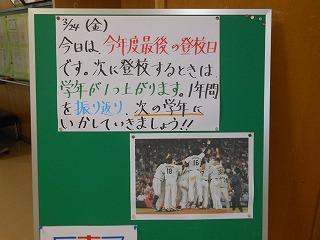 3/24(金)
今日は、今年度最後の登校日
です。次に登校するときは、
学年が1つ上がります。1年間
を振り返り、次の学年に
いかしていきましょう!!
18
16